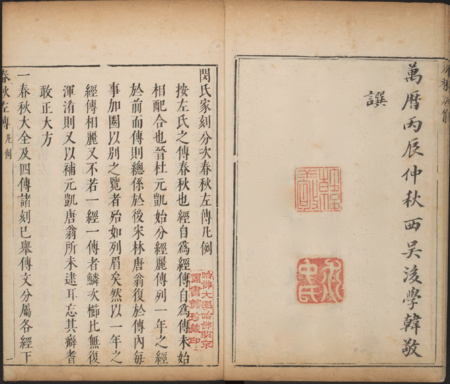 萬曆丙辰仲秋西吳後學韓敬
譔
閔氏家刻分次春秋左傳凡例
按左氏之傳春秋也經自為經傳自為傳未始
相配合也晉杜元凱始分經麗傳列一年之經
於前而傳則總係於後宋林唐翁復於傳內每
事加圈以別之覽者殆如列眉矣然以一年之
經傳相麗又不若一經一傳者鱗次櫛比無復
渾淆則又以補元凱唐翁所未逮耳忘其僭者
敢正大方
一春秋大全及四傳諸刻已舉傳文分屬各經下
春秋左傳 凡例
一